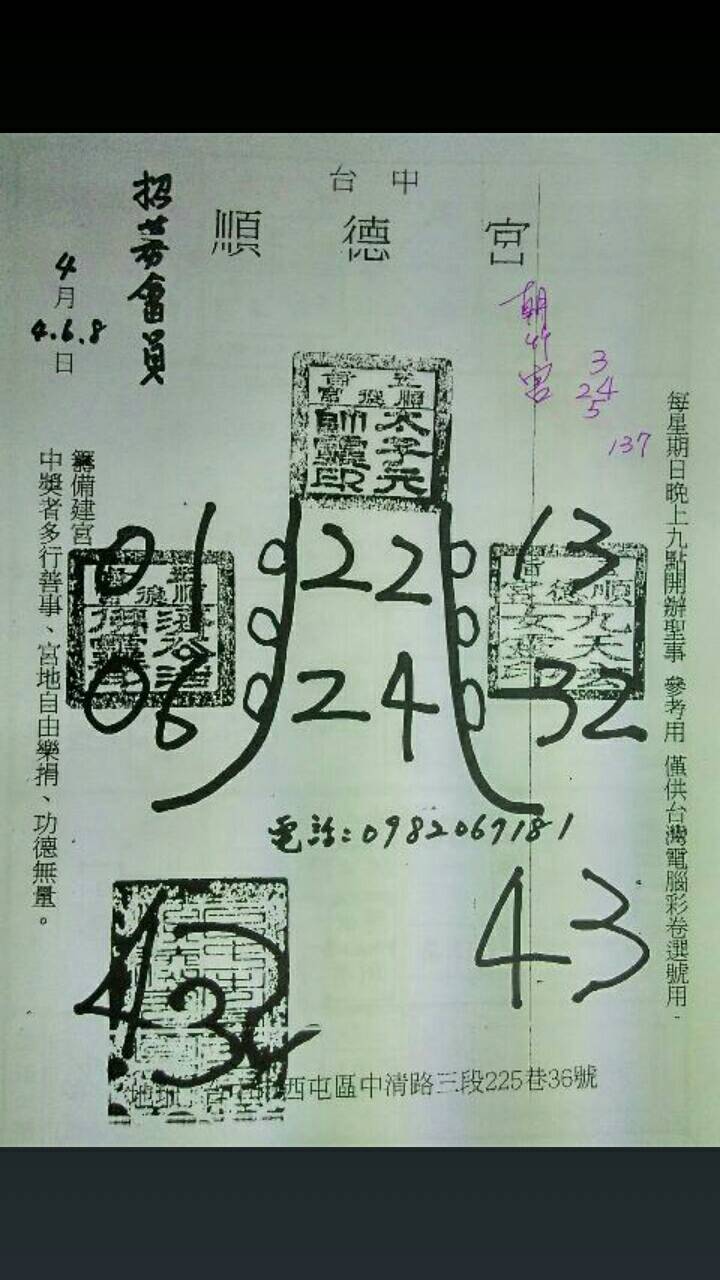 台中
順德宮
招募會員
4月4.6.8日
朝竹宮
3
24
5
137
每星期日晚上九點開辦聖事 參考用 僅供台灣電腦彩卷選號用
籌備建宮
中獎者多行善事、宮地自由樂捐、功德無量。
太子元帥靈印
01 22 13
06 24 32
電話:0982067181
43
43
地址 台中 西屯區中清路三段225巷36號